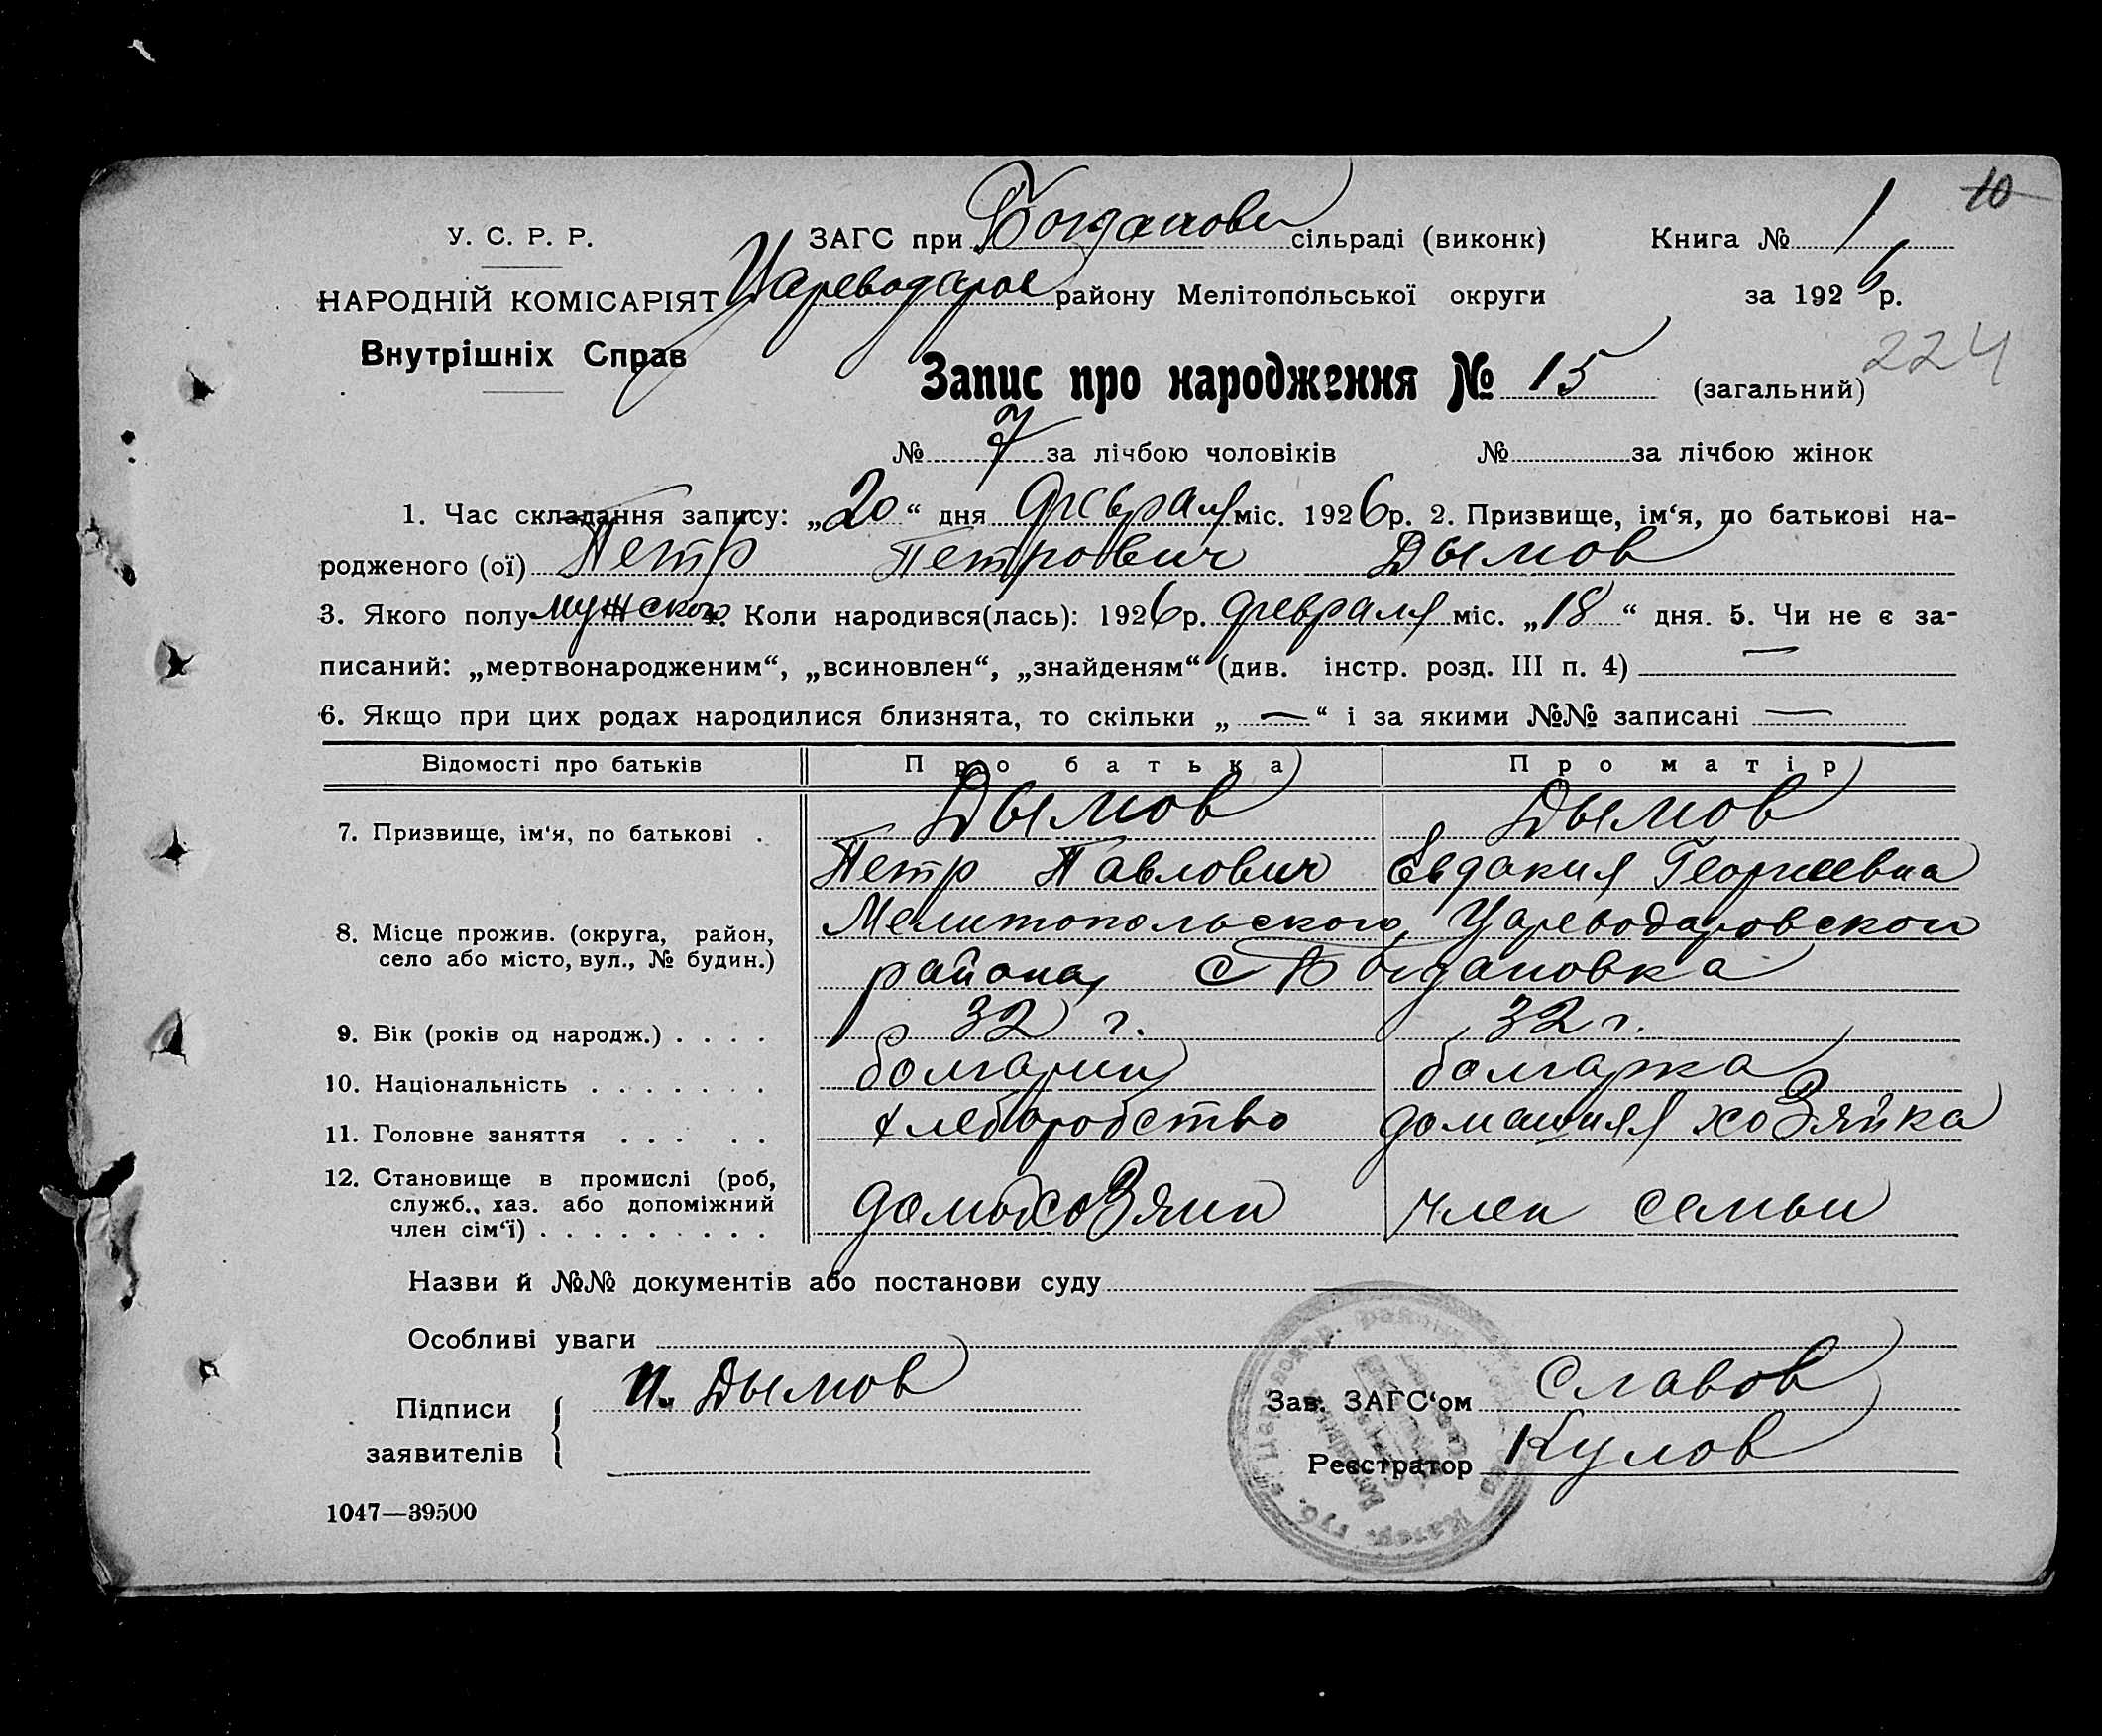 10
У. С. Р. Р. ЗАГС при Богданови сільраді (виконк) Книга № 1
НАРОДНІЙ КОМІСАРІЯТ Цареводаров району Мелітопольської округи за 1926 р.
Внутрішніх Справ
224
Запис про народження № 15 (загальний)
№ 7 за лічбою чоловіків № за лічбою жінок
1. Час складання запису: „20“ дня февраля міс. 1926 р. 2. Призвище, ім‘я, по батькові на-
родженого (ої) Петр Петрович Дымов
3. Якого полу мужского 4. Коли народився(лась): 1926 р. февраля міс. „18“ дня. 5. Чи не є за-
писаний: „мертвонародженим“, „всиновлен“, „знайденям“ (див. інстр. розд. III п. 4) —
6. Якщо при цих родах народилися близнята, то скільки „ — “ і за якими №№ записані —
Відомості про батьків Про батька Про матір
Дымов Дымов
7. Призвище, ім‘я, по батькові .
Петр Павлович Евдакия Георгиевна
8. Місце прожив. (округа, район, Мелитопольского, Цареводаровского
село або місто, вул., № будин.) района, с Богдановка
9. Вік (років од народж.) . . . . 32 г. 32 г.
10. Національність . . . . . . . болгарин болгарка
11. Головне заняття . . . . . хлеборобство домашняя хозяйка
12. Становище в промислі (роб,
служб., хаз. або допоміжний домохозяин член семьи
член сім‘ї) . . . . . . . . .
Назви й №№ документів або постанови суду
Особливі уваги
Підписи П. Дымов Зав. ЗАГС‘ом Славов
заявителів Реєстратор Кулов
1047—39500